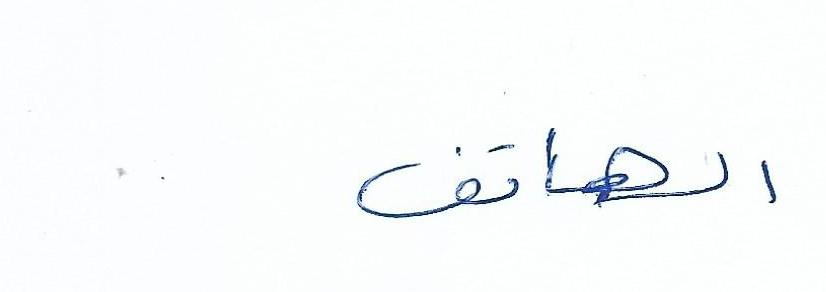 الهاتف